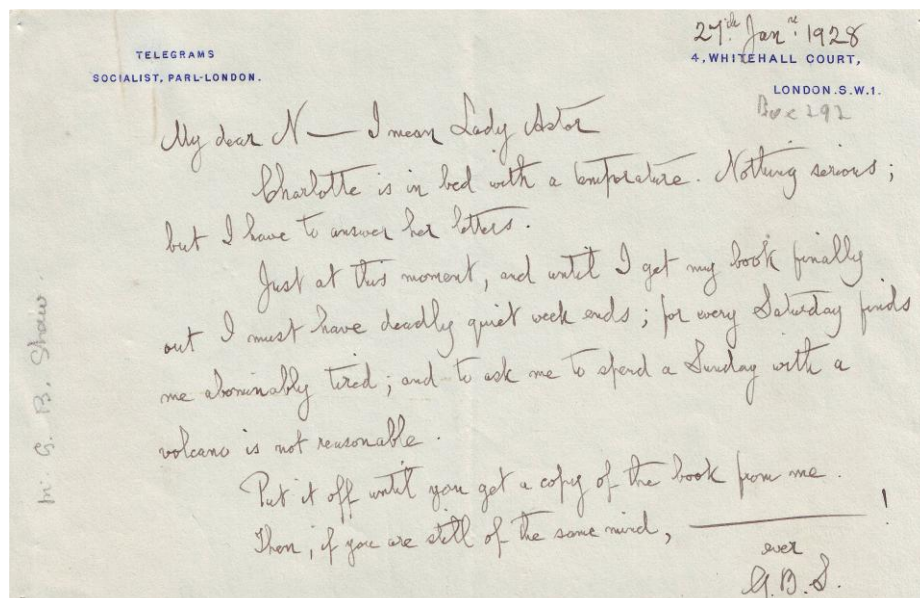 27th Janr. 1928
TELEGRAMS
SOCIALIST, PARL-LONDON.
4, WHITEHALL COURT,
LONDON. S.W.1.
Box 292
My dear N— I mean Lady Astor
Charlotte is in bed with a temperature. Nothing serious;
but I have to answer her letters.
Just at this moment, and until I get my book finally
out I must have deadly quiet week ends; for every Saturday finds
me abominably tired; and to ask me to spend a Sunday with a
volcano is not reasonable.
Put it off until you get a copy of the book from me.
Then, if you are still of the same mind, ———!
ever
G.B.S.
G. B. Shaw